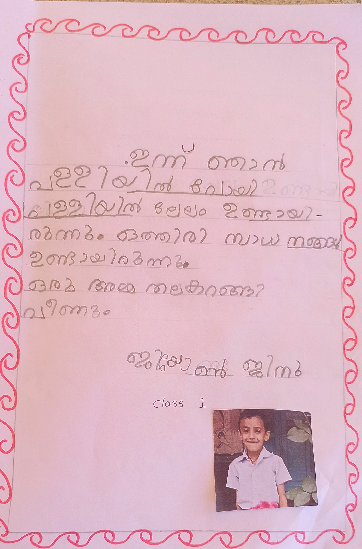 ഇന്ന് ഞാൻ
പള്ളിയിൽ പോയി
പള്ളിയിൽ ലേലം ഉണ്ടായി-
രുന്നു. ഒത്തിരി സാധനങ്ങൾ
ഉണ്ടായിരുന്നു.
ഒരു അമ്മ തലകറങ്ങി
വീണു.
ജിനു
class I